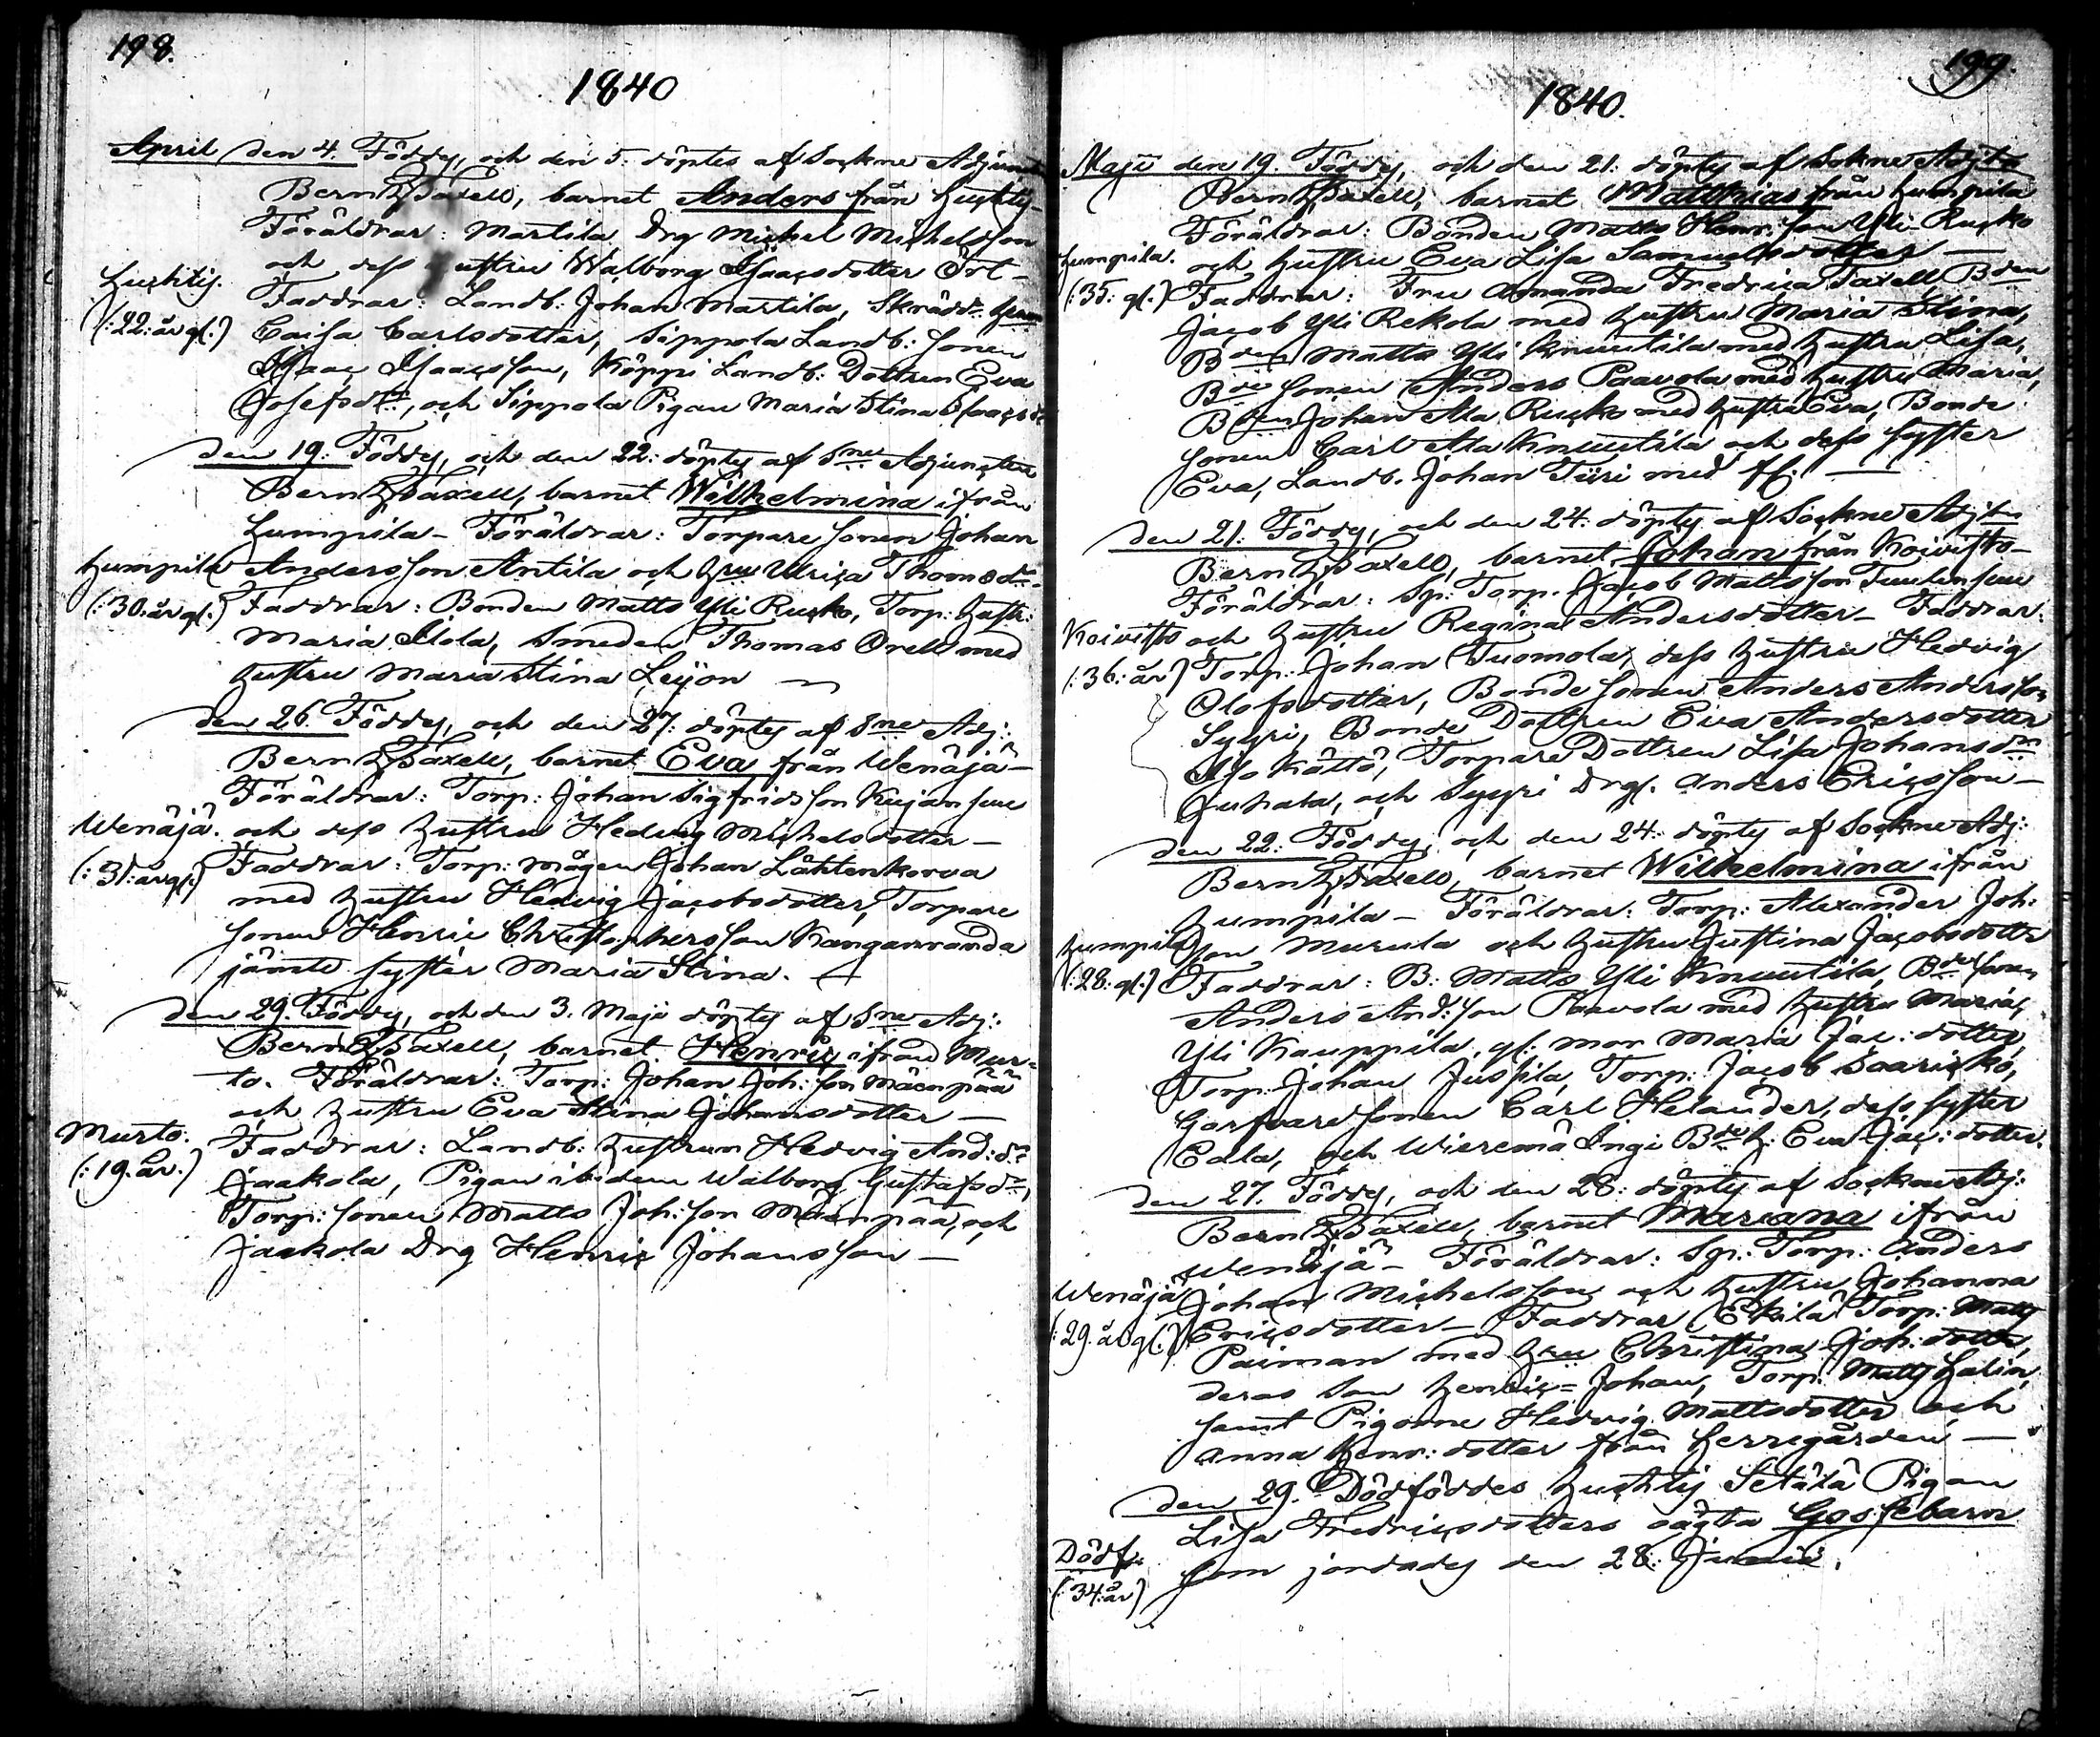 198.
1840
April den 4. Föddes, och den 5. döptes af Sockne Adjuncten
Bernh. Taxell, barnet Anders från Huchtis-
Föräldrar: Martila Drg Michel Michelsson
och dess hustru Walborg Isaacsdotter Ört-
Huchtis. Faddrar: Landb: Johan Martila, Skrädd.
(:22: år gl.) Caisa Carlsdotter, Sippola Landb: sonen
Isaac Isaacsson, Köppi Landb: Dottren Eva
Josefsdtr, och Sippola Pigan Maria Stina Isaacsdr
den 19. Föddes, och den 22: döptes af Sne Adjuncten
Bernh. Taxell, barnet Wilhelmina ifrån
Humpila - Föräldrar: Torpare sonen Johan
Humpila Andersson Antila och Hru Ulrica Thomsdr-
(:30: år gl:) Faddrar: Bonden Matts Yli Rucko, Torp: Hustr:
Maria Ilola, Smeden Thomas Orell med
hustru Maria Stina Leijon
den 26. Föddes, och den 27: döptes af Sne Adj:
Bernh. Taxell, barnet Eva från Wenäjä-
Föräldrar: Torp: Johan Sigfridsson Kujansuu
Wenäjä. och dess hustru Hedvig Michelsdotter-
(:31: år gl:) Faddrar: Torp: mågen Johan Lähtenkorva
med hustru Hedvig Jacobsdotter, Torpare
sonen Henric Christophersson Kanganranda
jämte syster Maria Stina.
den 29. Föddes, och den 3. Maji döptes af Sne Adj:
Bernh. Taxell, barnet Henric ifrån Mur-
to. Föräldrar: Torp: Johan Joh: son Mäenpää
och hustru Eva Stina Johansdotter-
Murto. Faddrar: Landb: hustrun Hedvig And: dr
(:19. år:) Jaakola, Pigan ibidem Walborg Gustafsdr,
Torp: sonen Matts Joh: son Mäenpää, och
Jaakola Drg Henric Johansson-
199.
1840.
Maji den 19. Föddes, och den 21. döptes af Sokne Adjtn
Bernh. Taxell, barnet Matthias från Humpila
Föräldrar: Bonden Matts Henr: son Yli-Rucko
Humpila. och hustru Eva Lisa Samuelsdotter-
(:35: gl.) Faddrar: Fru Amanda Fredrica Taxell, Bden
Jacob Yli Rekola med hustru Maria Stina,
Bden Matts Yli Knuutila med hustru Lisa,
Bde sonen Anders Paavola med hustru Maria,
Bden Johan Ala Rucko med hustru Eva, Bonde
sonen Carl Ala Knuutila och dess syster
Eva, Landb. Johan Türi med fl:
den 21. Föddes, och den 24: döptes af Sockne Adjtn
Bernh. Taxell, barnet Johan från Koivisto-
Föräldrar: Sp: Torp. Jacob Mattsson Tuulensuu
Koivisto och hustru Regina Andersdotter- Faddrar:
(:36: år) Torp: Johan Tuomola, dess hustru Hedvig
Olofsdotter, Bonde sonen Anders Andersson
Syyri, Bonde Dottren Eva Andersdotter
Iso Kättö, Torpare Dottren Lisa Johansdr
Juhala, och Syyri Drg. Anders Ericsson-
den 22: Föddes, och den 24: döptes af Sockne Adj:
Bernh. Taxell, barnet Wilhelmina ifrån
Humpila- Föräldrar: Torp: Alexander Joh:
Humpila son Murula och hustru Justina Jacobsdotter
(:28: gl.) Faddrar: B: Matts Yli Knuutila, Bde sonen
Anders And: son Paavola med hustru Maria,
Yli Kauppila, gl: mor Maria Jac: dotter,
Torp: Johan Jussila, Torp: Jacob Saarickå,
Garfvare sonen Carl Helander, dess syster
Eala, och Wieremä Ingi Bde h: Eva Jac: dotter.
den 27. Föddes, och den 28: döptes af Sockne Adj:
Bernh. Taxell, barnet Mariana ifrån
Wenäjä- Föräldrar: Sp: Torp: Anders
Wenäjä Johan Michelsson och hustru Johanna
(:29. år gl:) Ericsdotter- Faddrar Ekilä Torp: Matts
Paiman med Hru Christina Joh: dotter,
deras Son Henric-Johan, Torp: Matts Halin,
samt Pigorne Hedvig Mattsdotter och
Anna Henr: dotter från Herregården-
den 29. Dödföddes Huchtis Setälä Pigan
Lisa Fredricsdotters oägta Gossebarn
Dödf: som jordades den 28: Junii.
(:34: år)